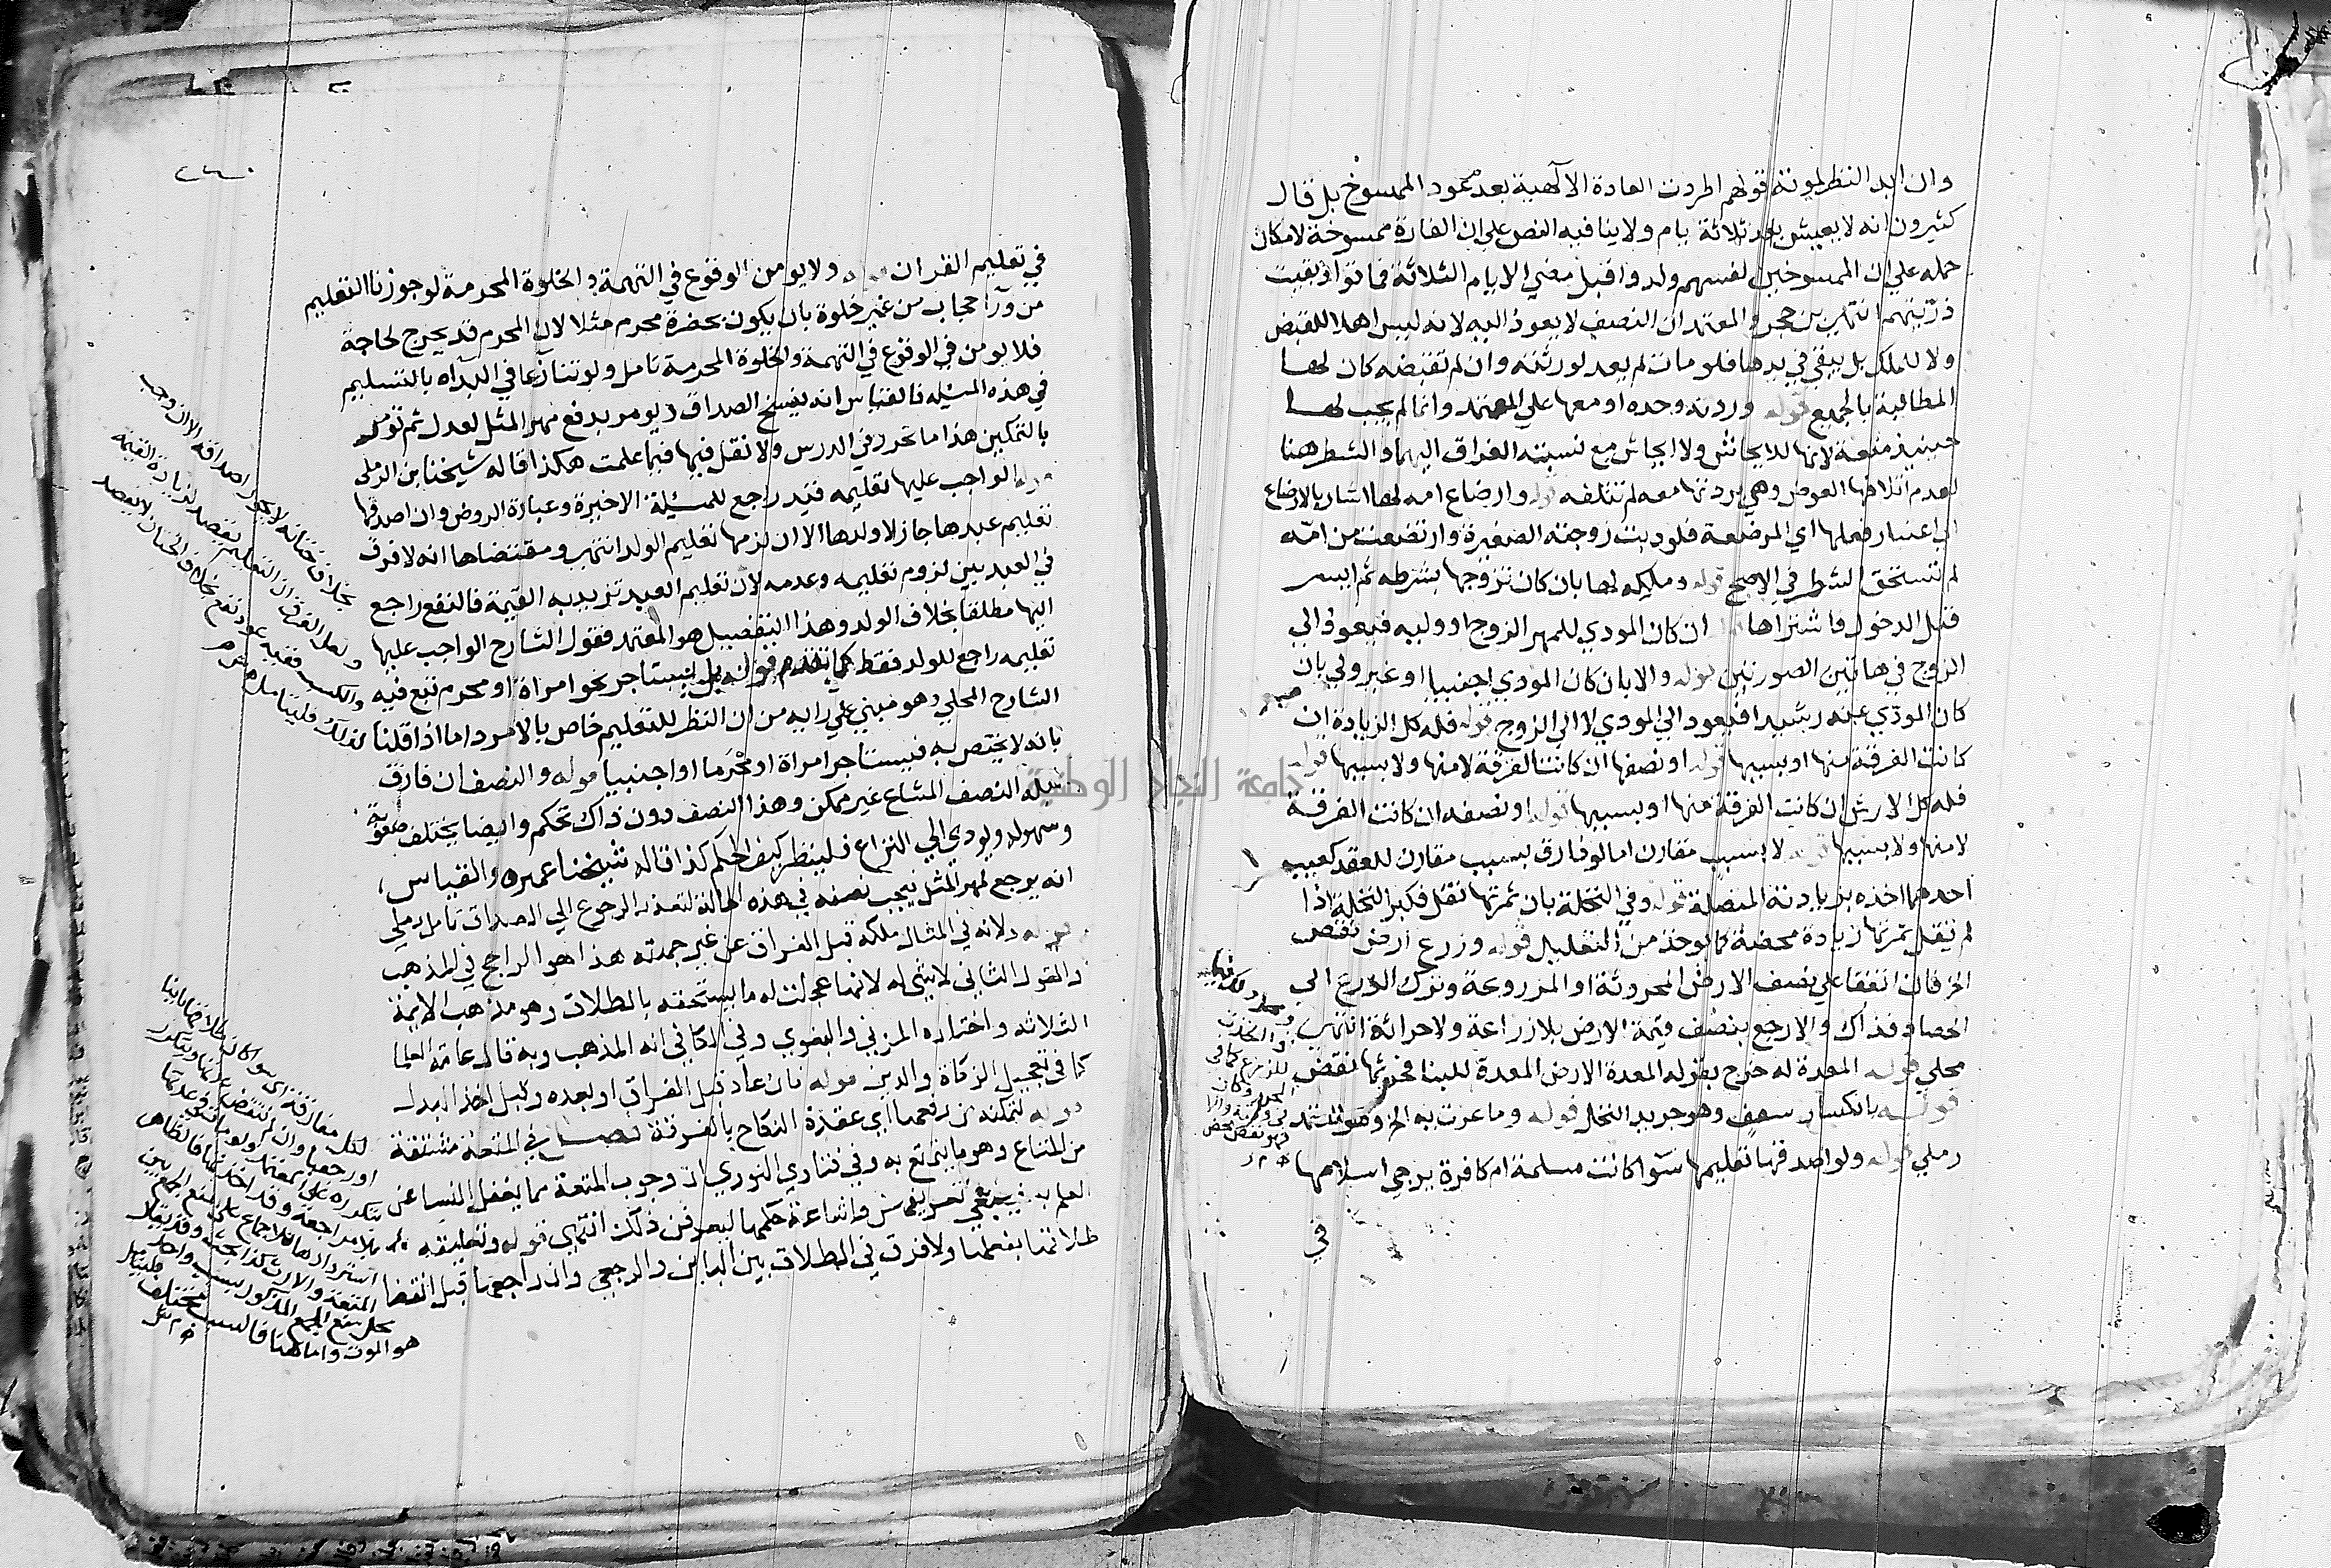 وان ابد النظر لمونه قولهم اطردت العادة الالهية بعدم عود الممسوخ بل قال
كثيرون انه لا يعيش بعد ثلاثة ايام ولا ينافيه النص على ان الفارة ممسوخة لامكان
حمله على ان الممسوخين لفسهم ولدوا قبل مضي الايام الثلاثة فماتوا وبقيت
ذريتهم انتهى بن حجر والمعتمد ان النصف لا يعود اليه لانه ليس اهلا للقبض
ولا للملك بل يبقى في يدها فلو مات لم يعد لورثته وان لم تقبضه كان لها
المطالبة بالجميع قوله وردته وحده او معها على المعتمد وانما لم يجب لها
حينيذ متعة لانها للايحاش ولا ايحاش مع نسبته الفراق اليهما والشطر هنا
لعدم اتلافها العوض وهي بردتها معه لم تتلفه قوله وارضاع امه لها اشار بالارضاع
الى اعتبار فعلها اي المرضعة فلو دبت زوجته الصغيرة وارتضعت من امه
لم تستحق الشطر في الاصح قوله وملكه لها بان كان تزوجها بشرطه ثم ايسر
قبل الدخول فاشتراها قوله ان كان المودي للمهر الزوج او وليه فيعود الى
الزوج في هاتين الصورتين قوله والا بان كان المودي اجنبيا او غير ولي بان
كان المودي عنه رشيدا فيعود الى المودي لا الى الزوج قوله فله كل الزيادة ان
كانت الفرقة منها او بسببها قوله او نصفها ان كانت الفرقة لا منها ولا بسببها قوله
فله كل الارش ان كانت الفرقة منها او بسببها قوله او نصفه ان كانت الفرقة
لا منها ولا بسببها قوله لا بسبب مقارن اما لو فارق بسبب مقارن للعقد كعيب
احدهما اخذه بزيادته المنصلة قوله وفي النخلة بان ثمرتها تقل فكبر النخلة اذا
لم تقل ثمرتها زيادة محضة كما يوخذ من التقليل قوله وزرع ارض نقص
الخ فان اتفقا على نصف الارض المحروثة او المزروعة وترك الزرع الى
الحصاد فذاك والا رجع بنصف قيمة الارض بلا زراعة ولا حراثة انتهى
محلي قوله المعدة له خرج بقوله المعدة الارض المعدة للبنا فحرثها نقص
قوله بانكسار سعف وهو جريد النخل قوله وما عرت به الخ وهو
رملي قوله ولو اصدقها تعليمها سوا كانت مسلمة ام كافرة يرجى اسلامها
في
في تعليم القران ولا يومن الوقوع في التهمة والخلوة المحرمة لو جوزنا التعليم
من ورآ حجاب من غير خلوة بان يكون بحضرة محرم مثلا لان المحرم قد يخرج لحاجة
فلا يومن في الوقوع في التهمة والخلوة المحرمة تامل ولو تنازعا في البداه بالتسليم
في هذه المسيلة فالقياس انه يفسخ الصداق ويومر بدفع مهر المثل لعدل ثم تومر
بالتمكين هذا ما تحرر في الدرس ولا نقل فيها فيما علمت هكذا قاله شيخنا بن الرملي
قوله الواجب عليها تعليمه قيد راجع للمسيلة الاخيرة وعبارة الروض وان اصدقها
تعليم عبدها جاز لا ولدها الا ان لزمها تعليم الولد انتهى ومقتضاها انه لا فرق
في العبد بين لزوم تعليمه وعدمه لان تعليم العبد تزيد به القيمة فالنفع راجع
اليها مطلقا بخلاف الولد وهذا التفصيل هو المعتمد فقول الشارح الواجب عليها
تعليمه راجع للولد فقط كما تقدم قوله بل يستاجر نحو امراة او محرم تبع فيه
الشارح المحلي وهو مبني على رايه من ان النظر للتعليم خاص بالامرد اما اذا قلنا
بانه لا يختص به فيستاجر امراة او محرما او اجنبيا قوله والنصف ان فارق
قيله النصف المشاع غير ممكن وهذا النصف دون ذاك تحكم وايضا يختلف صعوبة
وسهولة ويودي الى النزاع فلينظر كيف الحكم كذا قاله شيخنا عميره والقياس
انه يرجع لمهر المثل فيجب نصفه في هذه الحالة لتعذر الرجوع الى الصداق تامل رملي
قوله ولانه في المثال ملكه قبل الفراق عن غير جهته هذا هو الراجح في المذهب
والقول الثاني لا شي له لانها عجلت له ما يستحقه بالطلاق وهو مذهب الايمة
الثلاثه واختاره المزني والبغوي وفي الكافي انه المذهب وبه قال عامة العلما
كما في تعجيل الزكاة والدين قوله فان عاد قبل الفراق او بعده وقبل اخذ البدل
قوله لتمكنه من رفعها اي عقدة النكاح بالفرقة فصل في المتعة مشتقة
من المتاع وهو ما يتمتع به وفي فتاوي النووي ان وجوب المتعة مما يغفل النسا عن
العلم به فينبغي تعريفهن واشاعة حكمها ليعرفن ذلك انتهى قوله وتعليقه
طلاقها بفعلها ولا فرق في الطلاق بين الباين والرجعي وان راجعها قبل انقضا
بخلاف ختانه لا يجوز اصداقه الا ان وجب
ولعل الفرق ان التعليم يقصد لزيادة القيمة
هو الموت واما هنا فالسبب مختلف
جامعة النجاح الوطنية